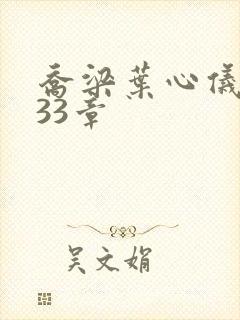 乔梁叶心仪
33章
吴文娟